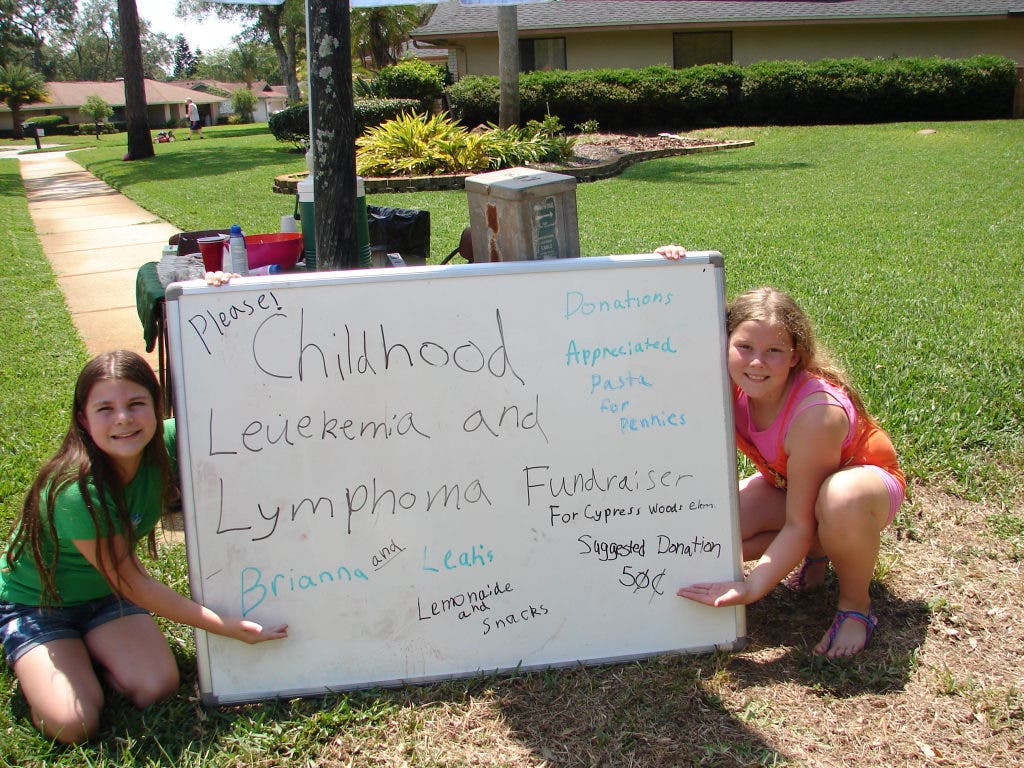 Please!
Childhood
Leuekemia and
Lymphoma Fundraiser
For Cypress Woods Elem.
Donations
Appreciated
Pasta
for
Pennies
Brianna and Leah's
Lemonaide
and
Snacks
Suggested Donation
50¢